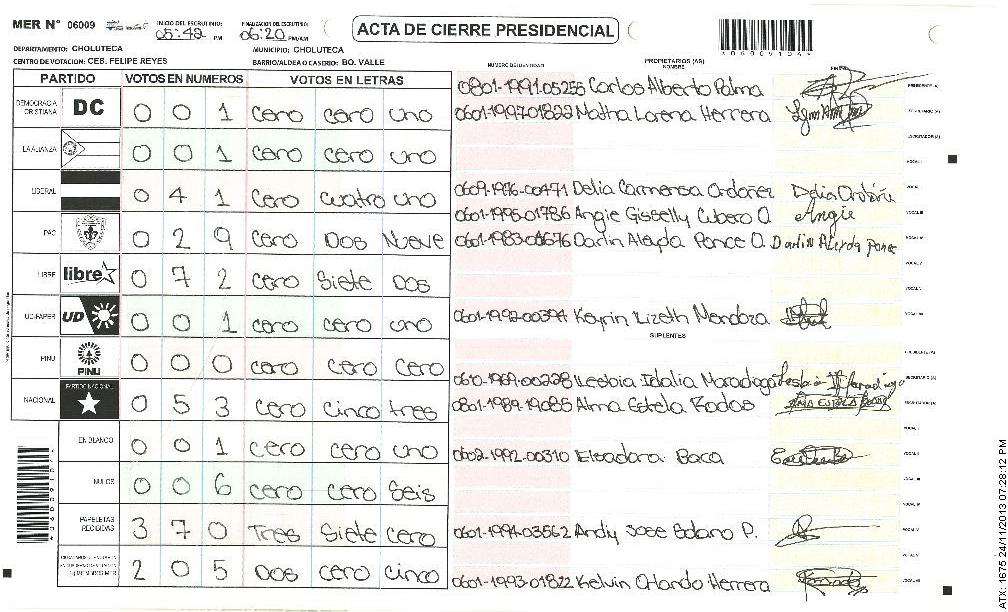 MER N° 06009 INICIO DEL ESCRUTINIO: 05:49 PM FINALIZACION DEL ESCRUTINIO: 06:20 PM/AM ACTA DE CIERRE PRESIDENCIAL
DEPARTAMENTO: CHOLUTECA MUNICIPIO: CHOLUTECA
CENTRO DE VOTACION: CEB. FELIPE REYES BARRIO/ALDEA O CASERIO: BO. VALLE
PARTIDO VOTOS EN NUMEROS VOTOS EN LETRAS
NUMERO DE IDENTIDAD PROPIETARIOS (AS) NOMBRE FIRMA
DEMOCRACIA CRISTIANA DC 0 0 1 cero cero uno
LA ALIANZA 0 0 1 cero cero uno
LIBERAL 0 4 1 cero cuatro uno
PAC 0 2 9 cero Dos Nueve
LIBRE libre 0 7 2 cero Siete Dos
UD-FAPER UD 0 0 1 cero cero uno
PINU PINU 0 0 0 cero cero cero
NACIONAL PARTIDO NACIONAL 0 5 3 cero cinco tres
EN BLANCO 0 0 1 cero cero uno
NULOS 0 0 6 cero cero Seis
PAPELETAS RECIBIDAS 3 7 0 Tres Siete cero
2 0 5 Dos cero cinco
0801-1991-05255 Carlos Alberto Palma PRESIDENTE (A)
0601-1997-01822 Matha Lorena Herrera SECRETARIO (A)
ESCRUTADOR (A)
VOCAL I
0609-1976-00471 Delia Carmensa Ordoñez Delia Ordoñez
0601-1995-01786 Angie Gisselly Cubero O. Angie VOCAL III
Darlin Aleyda Ponce O. Darlin Aleyda Ponce
VOCAL V
0601-1992-00394 Keyrin Lizeth Mendoza
SUPLENTES
PRESIDENTE (A)
0610-1969-00228 Lesbia Idalia Maradiaga SECRETARIO (A)
0801-1989-19085 Alma Estela Rodas ESCRUTADOR (A)
VOCAL I
0602-1992-00310 Eleadora Baca VOCAL II
VOCAL III
0601-1994-03562 Andy Jose Solano P. VOCAL IV
VOCAL V
0601-1993-01822 Kelvin Orlando Herrera
ATX: 1675 24/11/2013 07:28:12 PM